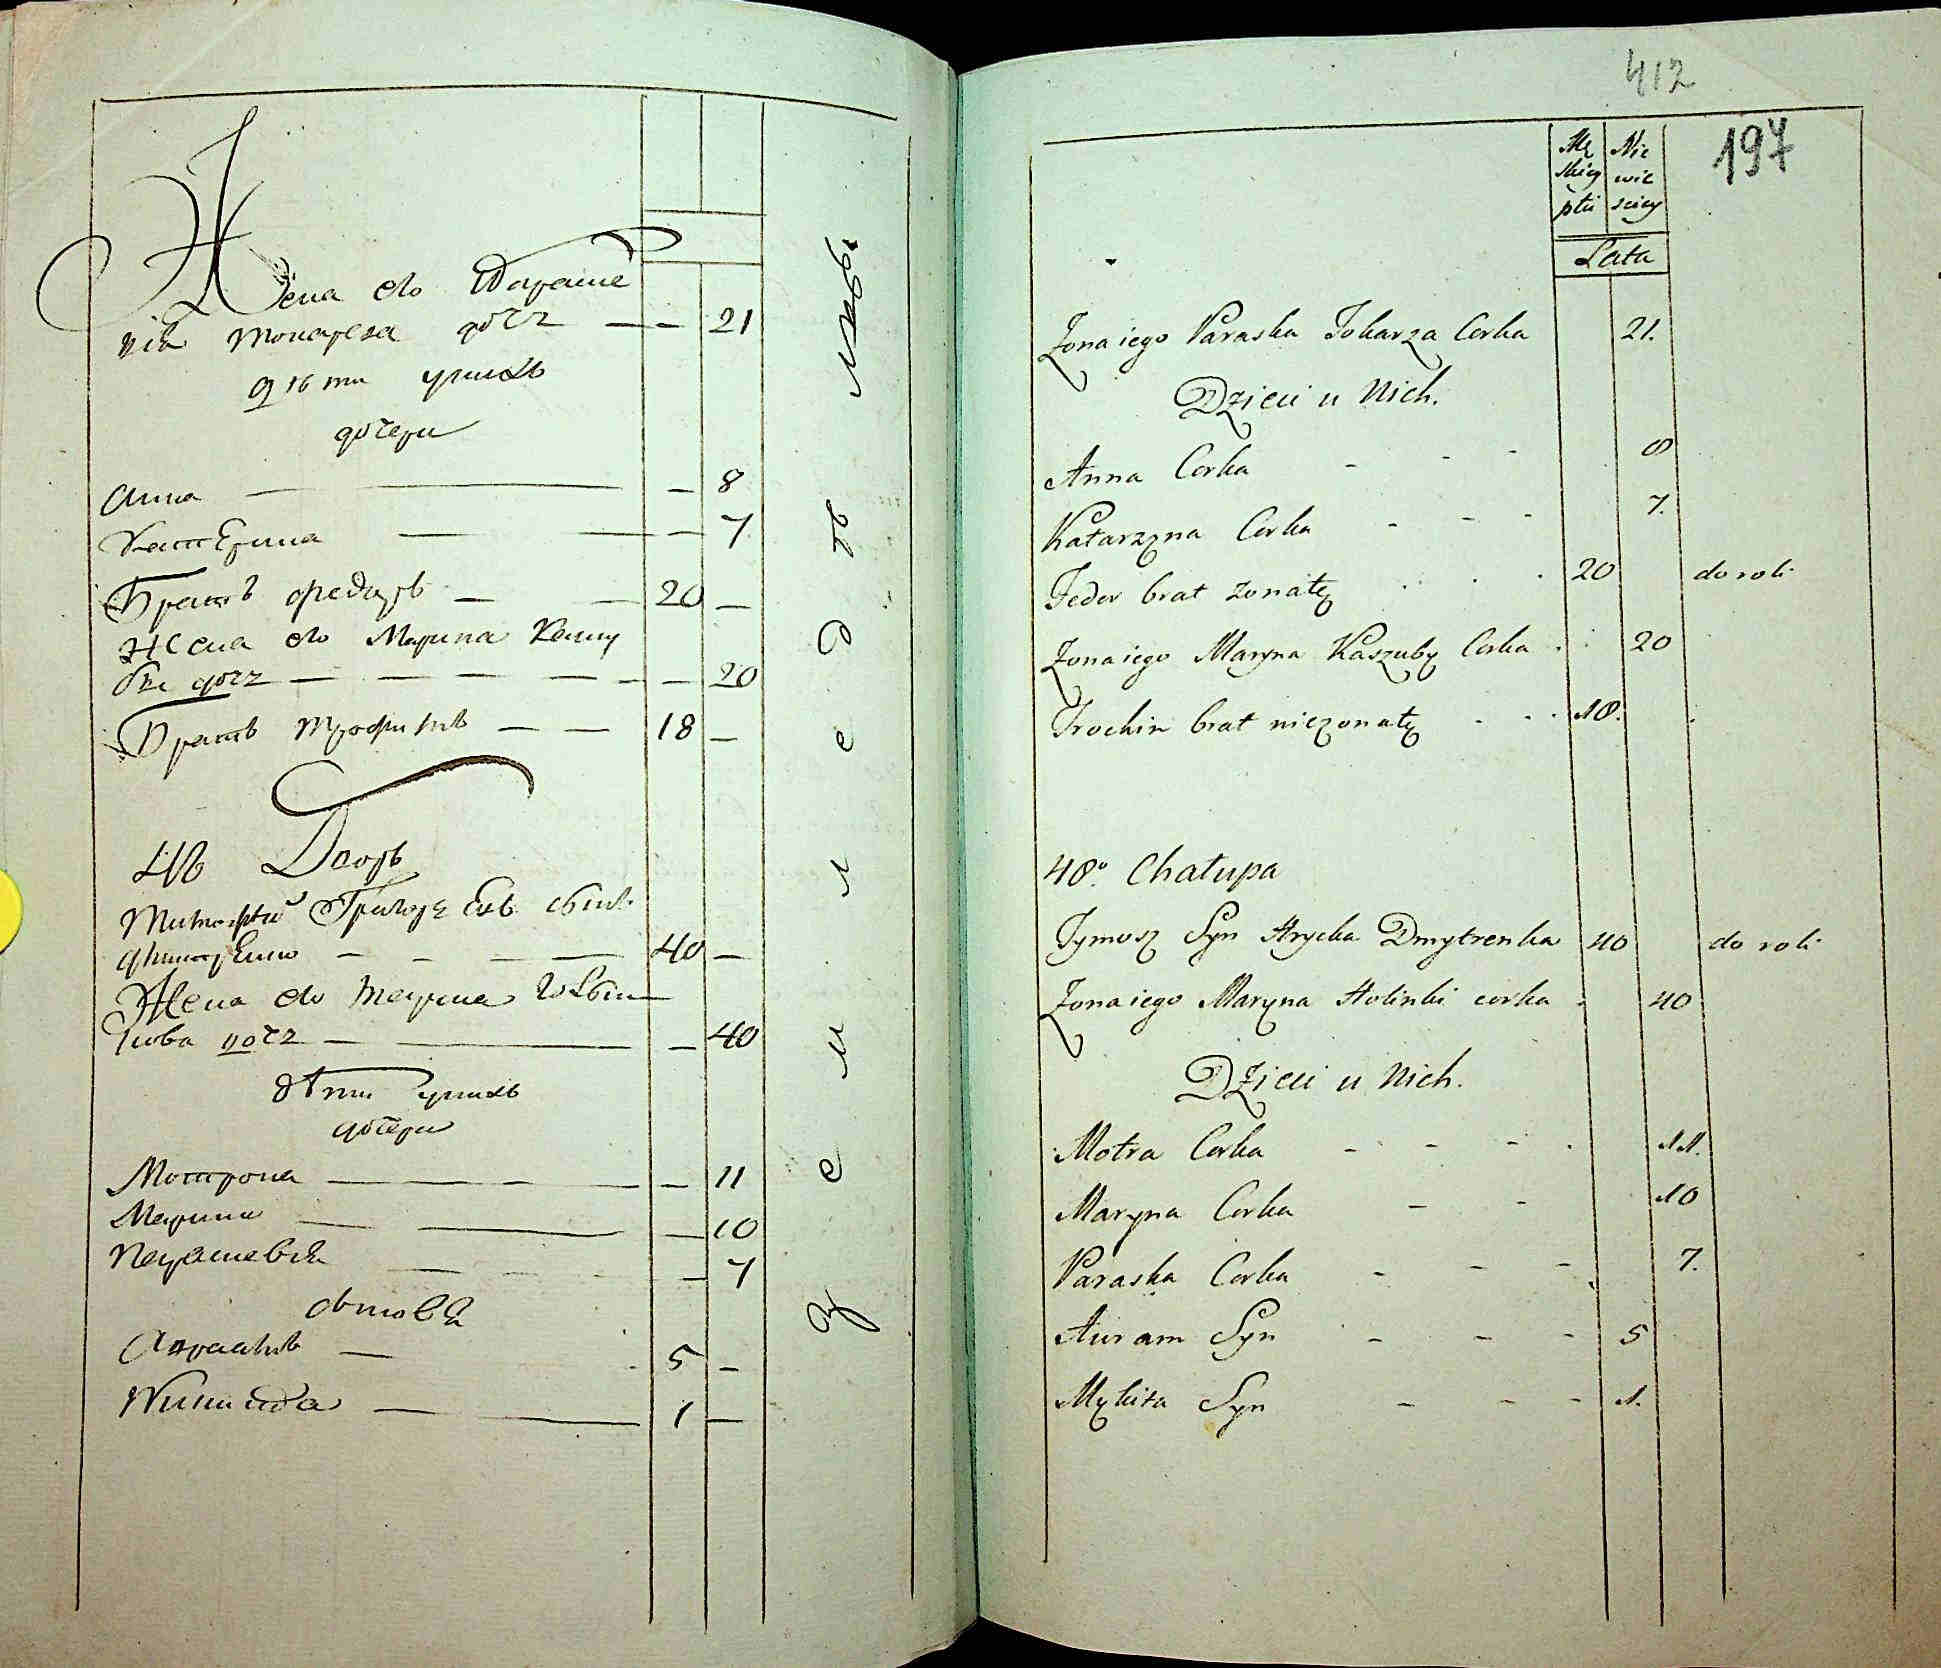 Жена его Параске
вія токареза дочь — — 21
Дѣти у нихъ
дочери
Анна — — 8
Катерина — — 7
Братъ Федоръ — — 20 —
Жена его Марина Кашу
бы дочь — — — — — 20
Братъ Трофимъ — — 18 —
48 Дворъ
Тимофей Григорьевъ сынъ
Дмитренко — — — 40 —
Жена его Марина
дочь — — — 40
Дѣти у нихъ
дочери
Мотрона — — — 11
Марина — — — 10
Парасковія — — — 7
сыновья
Авраамъ — 5 —
Никита — — 1 —
земледѣ
412
197
Mę Nie
skiey wie
płci sciey
Lata
Zona iego Paraska Tokarza Corka 21.
Dzieci u Nich.
Anna Corka - - - 8
Katarzyna Corka - - - 7.
Fedor brat zonaty . . . 20 do roli
Zona iego Maryna Kaszuby Corka . . 20
Trochim brat niezonaty - - . 18.
48º. Chałupa
Tymosz Syn Hrycka Dmytrenka 40 do roli
Zona iego Maryna Holinki corka . 40
Dzieci u Nich.
Motra Corka - - - . 11.
Maryna Corka - - 10
Paraska Corka - - - 7.
Awram Syn - - - 5
Mykita Syn - - - 1.